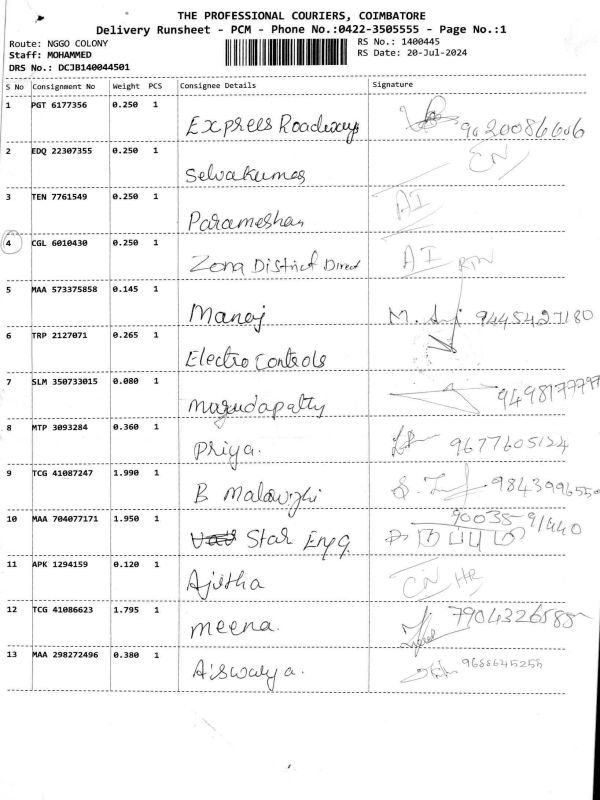 THE PROFESSIONAL COURIERS, COIMBATORE
Delivery Runsheet - PCM - Phone No.:0422-3505555 - Page No.:1
Route: NGGO COLONY
RS No.: 1400445
Staff: MOHAMMED
RS Date: 20-Jul-2024
DRS No.: DCJB140044501
S No Consignment No Weight PCS Consignee Details Signature
1 PGT 6177356 0.250 1
Express Roadways 9020086606
2 EDQ 22307355 0.250 1
Selvakumar EN
3 TEN 7761549 0.250 1
Parameshan AI
4 CGL 6010430 0.250 1
Zona District Direct AI RTN
5 MAA 573375858 0.145 1
Manoj M. 9445427180
6 TRP 2127071 0.265 1
Electro Controls
7 SLM 350733015 0.080 1
Magudapatty 9498177797
8 MTP 3093284 0.360 1
Priya. 9677605124
9 TCG 41087247 1.990 1
B Malawizhi 9843996550
10 MAA 704077171 1.950 1
Star Eng. 90035-91440
11 APK 1294159 0.120 1
Ajitha CN HR
12 TCG 41086623 1.795 1
meena. 7904326588
13 MAA 298272496 0.380 1
Aiswarya. 9688645255